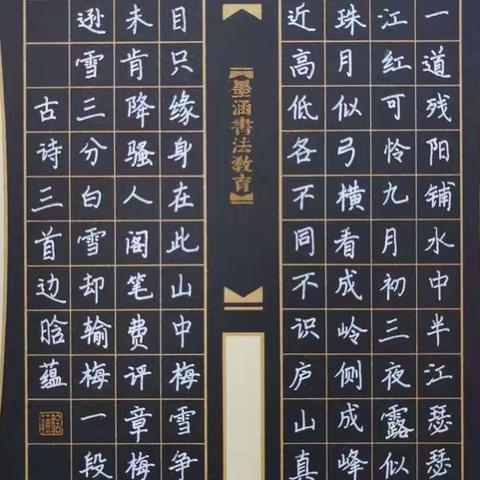 一道残阳铺水中半江瑟瑟
江红可怜九月初三夜露似
珠月似弓横看成岭侧成峰
近高低各不同不识庐山真
【墨涵書法教育】
目只缘身在此山中梅雪争
未肯降骚人阁笔费评章梅
逊雪三分白雪却输梅一段
古诗三首边晗蕴